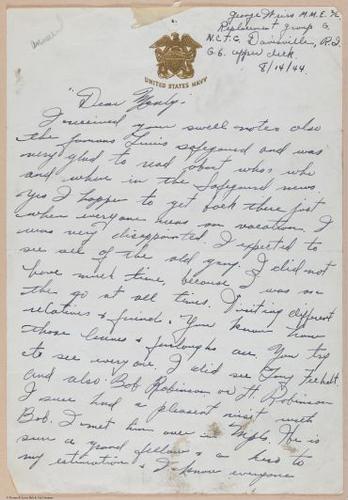 Answered
George Weiss M.M. 2/c
Replacement Group G.
N.C.T.C. Davisville, R.I.
G6. upper deck
8/14/44
UNITED STATES NAVY
"Dear Marty-
I received your swell notes also
the famous Luis safeguard and was
very glad to read about who's who
and where in the Safeguard news.
Yes I happen to get back there just
when everyone was on vacation. I
was very disappointed. I expected to
see all of the old gang. I did not
have much time, because I was on
the go at all times. Visiting different
relatives & friends. You know how
those leaves & furloughs are. You try
to see everyone. I did see Tony
and also Bob Robinson or Lt. Robinson
I sure had a pleasant visit with
Bob. I met him over in He is
sure a grand fellow & a hero to
my estimation & I know everyone